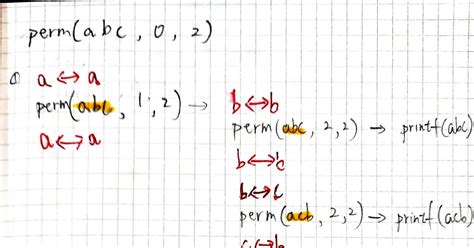 perm(abc, 0, 2)
① a↔a
perm(abc, 1, 2) →
a↔a
b↔b
perm(abc, 2,2) → printf(abc)
b↔b
b↔c
perm(acb, 2,2) → printf(acb)
c↔b